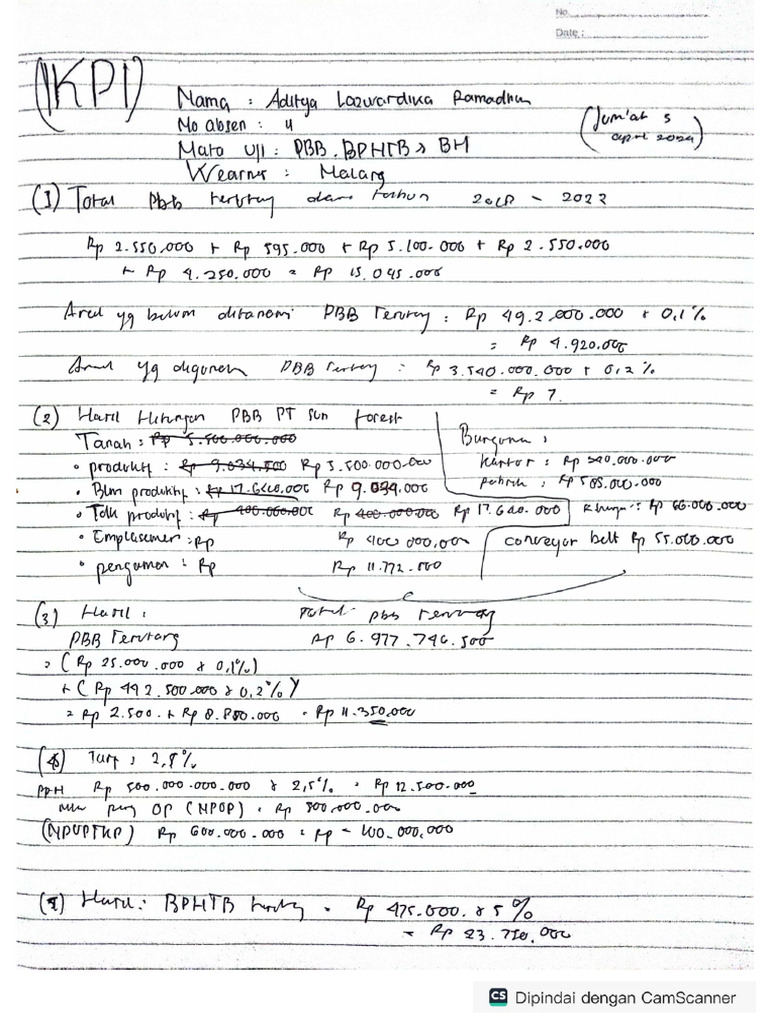 No.
Date :
(KPI)
Nama : Aditya Lazwardika Ramadhan
No absen : 4
(Jum'at 5
april 2024)
Mata Uji : PBB. BPHTB > BM
Wearnes : Malang
(1) Total Pbb terutang dari tahun 2018 - 2022
Rp 2.550.000 + Rp 595.000 + Rp 5.100.000 + Rp 2.550.000
+ Rp 4.250.000 = Rp 15.045.000
Areal yg belum ditanami PBB Terutang : Rp 49.2.000.000 x 0,1%
= Rp 4.920.000
Areal yg digunakan PBB terutang : Rp 3.540.000.000 x 0,2%
= Rp 7.
(2) Hasil Hitungan PBB PT Sun Forest
Tanah : Rp 5.500.000.000
• produktif : Rp 9.034.500 Rp 5.500.000.000
• Blm produktif : Rp 17.640.000 Rp 9.034.000
• Tdk produktif : Rp 400.000.000 Rp 400.000.000 Rp 17.640.000
• Emplasemen : Rp Rp 400.000,00
• pengaman : Rp Rp 11.772.500
Bangunan :
Kantor : Rp 340.000.000
pabrik : Rp 585.000.000
Rp 66.000.000
conveyor belt Rp 55.000.000
(3) Hasil : Total pbb terutang
PBB Terutang Rp 6.977.746.500
= (Rp 25.000.000 x 0,1%)
+ (Rp 442.500.000 x 0,2%)
= Rp 2.500. + Rp 8.850.000 = Rp 11.350,000
(4) Tarif : 2,5%
Rp 500.000.000.000 x 2,5% = Rp 12.500.000
OP (NPOP) = Rp 500.000.000
(NPOPTKP) Rp 600.000.000 = Rp - 100.000.000
(5) Hasil : BPHTB terutang = Rp 475.000. x 5%
= Rp 23.750.000
CS Dipindai dengan CamScanner